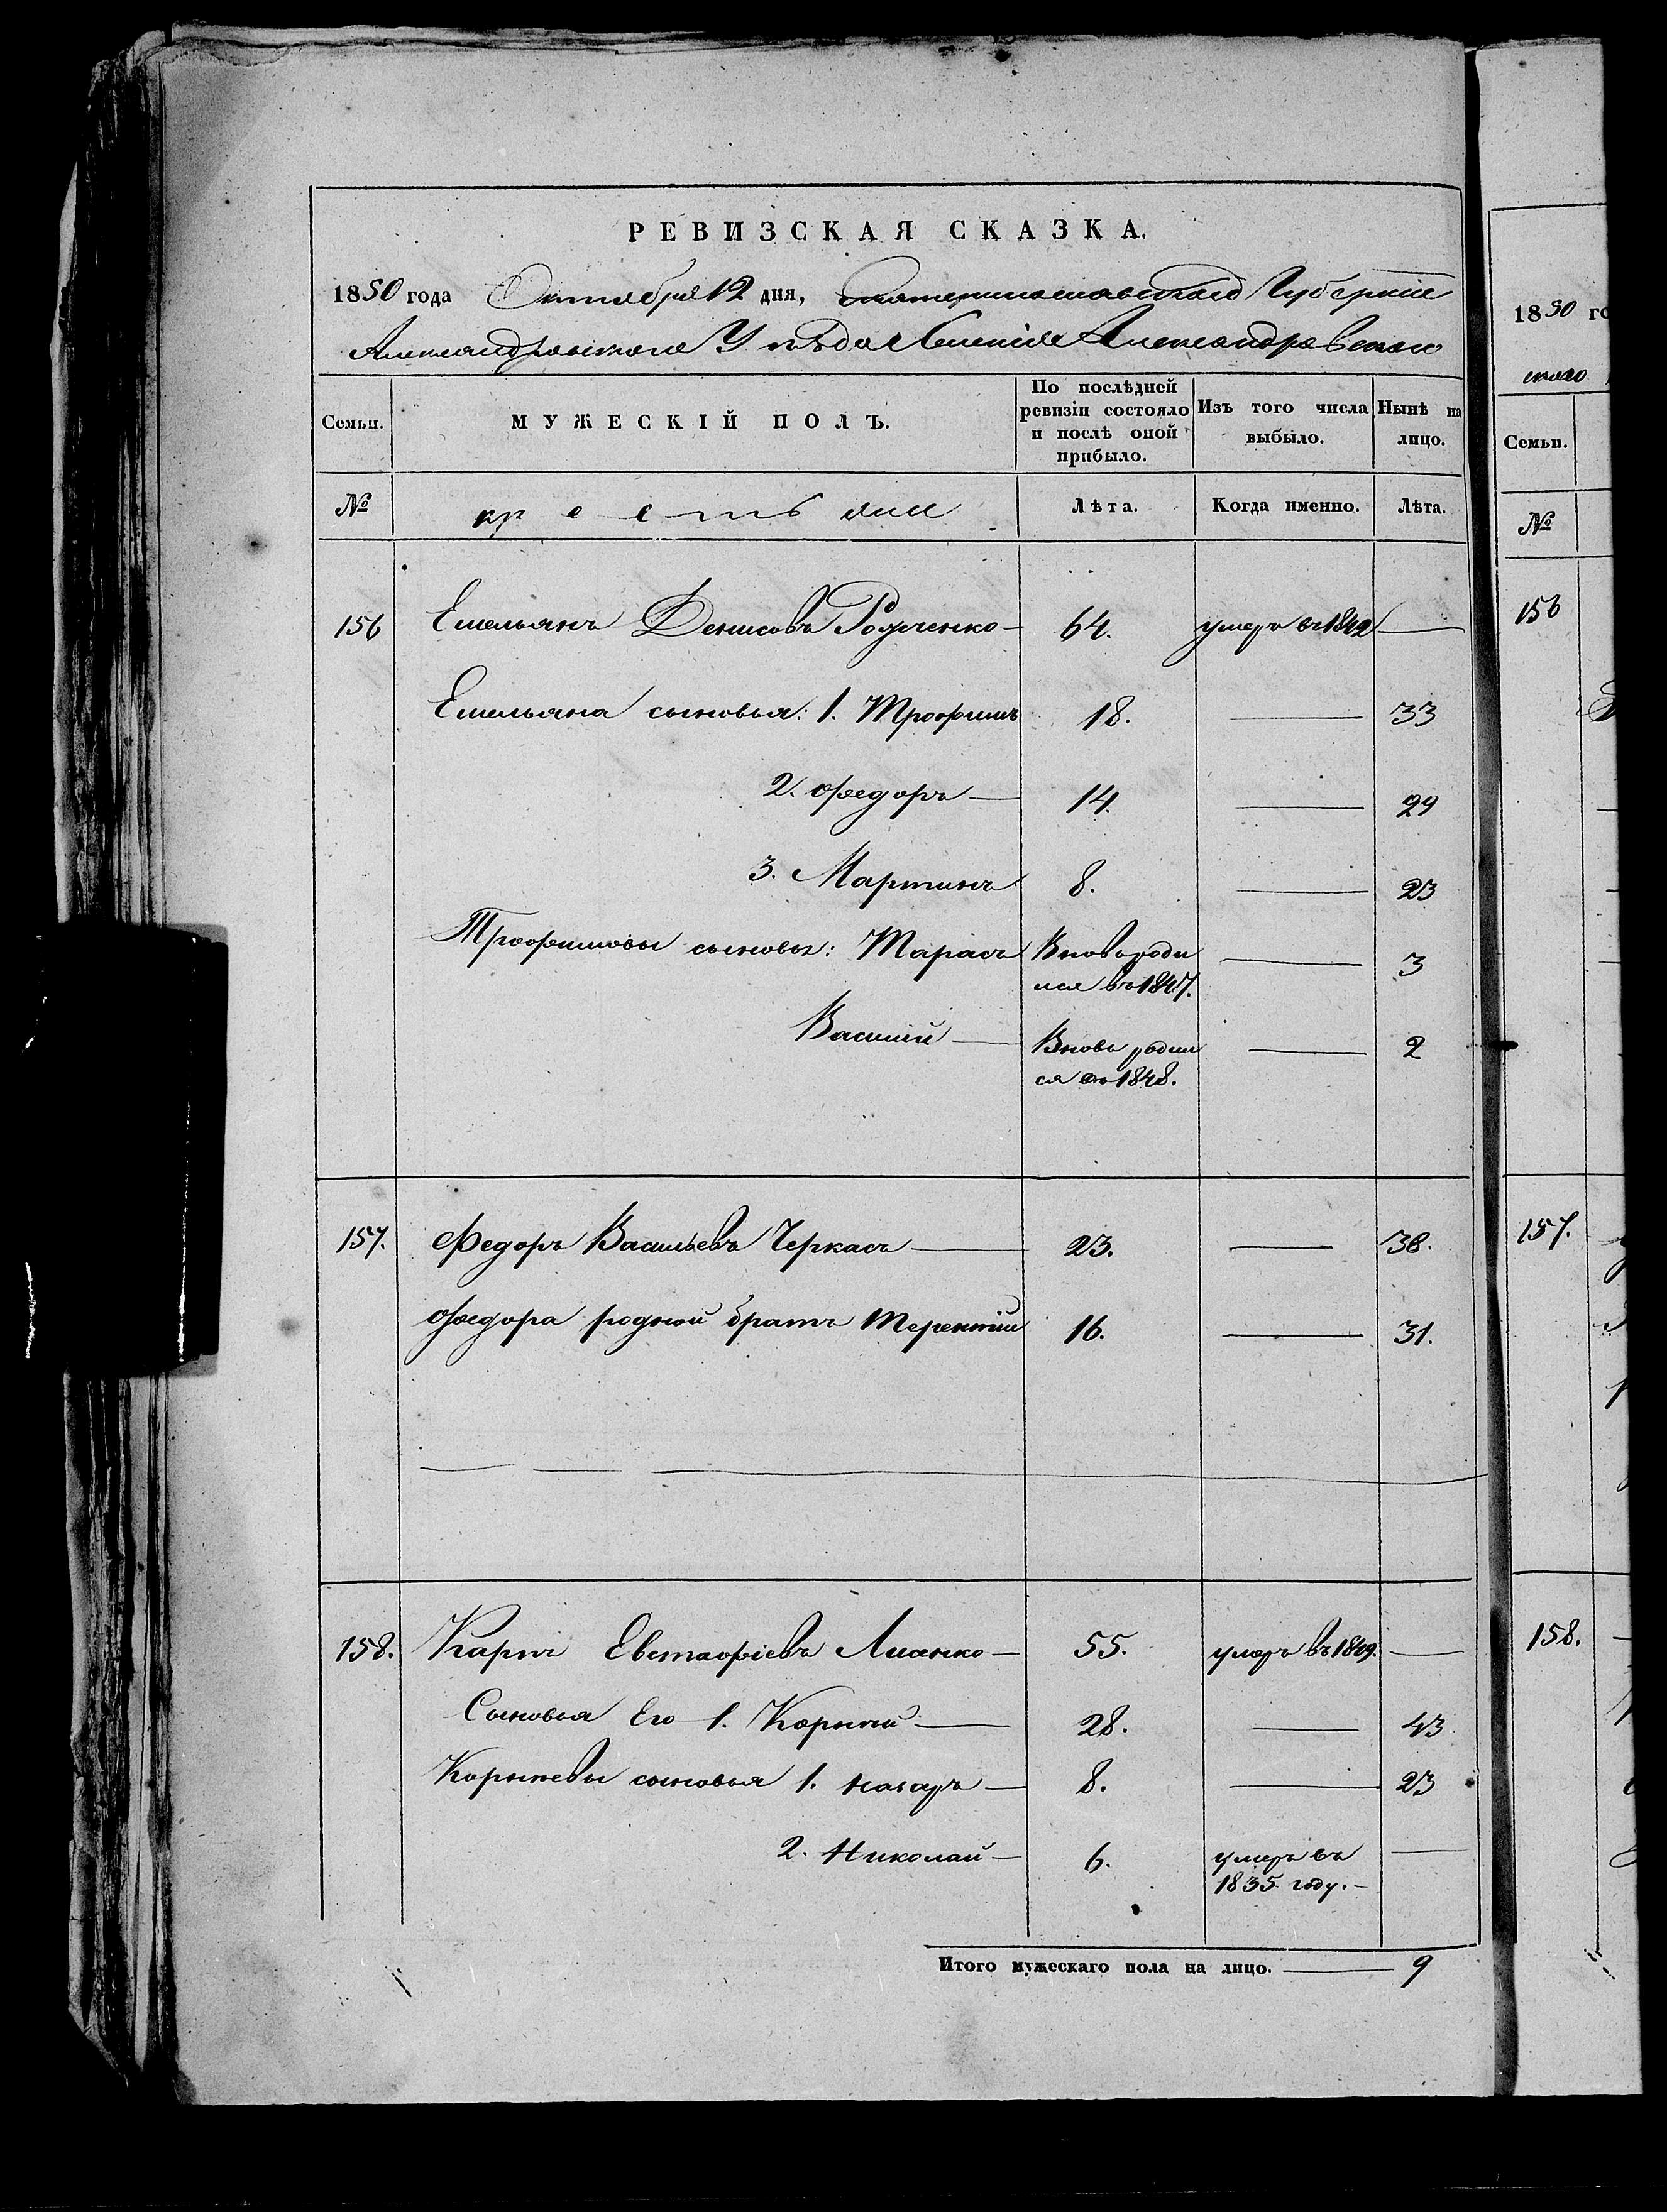 РЕВИЗСКАЯ СКАЗКА.
1850 года Октября 12 дня, Екатеринославской Губерніи
Александровского Уѣзда Селенія Александровского
Семьи. МУЖЕСКІЙ ПОЛЪ. По послѣдней ревизіи состояло и послѣ оной прибыло. Изъ того числа выбыло. Нынѣ на лицо.
№ крестьяни Лѣта. Когда именно. Лѣта.
156 Емельянъ Денисовъ — 64. умеръ въ 1842 —
Емельяна сыновья: 1. Трофимъ 18. — 33
2. Федоръ — 14. — 29
3. Мартинъ 8. — 23
Трофимовы сыновья: Тарасъ Вновь роди — 3
лся въ 1847.
Василий — Вновь родил — 2
ся въ 1848.
157. Федоръ Васильевъ Черкасъ — 23. — 38.
Федора родной братъ Терентій 16. — 31.
158. Карпъ Евстафіевъ Лисенко — 55. умеръ въ 1849. —
Сыновья Его 1. Корнѣй — 28. — 43
Корнѣевы сыновья 1. Назаръ — 8. — 23
2. Николай — 6. умеръ въ —
1835 году. —
Итого мужескаго пола на лицо. — 9
1850 го
ского
Семьи.
№
156
157.
158.